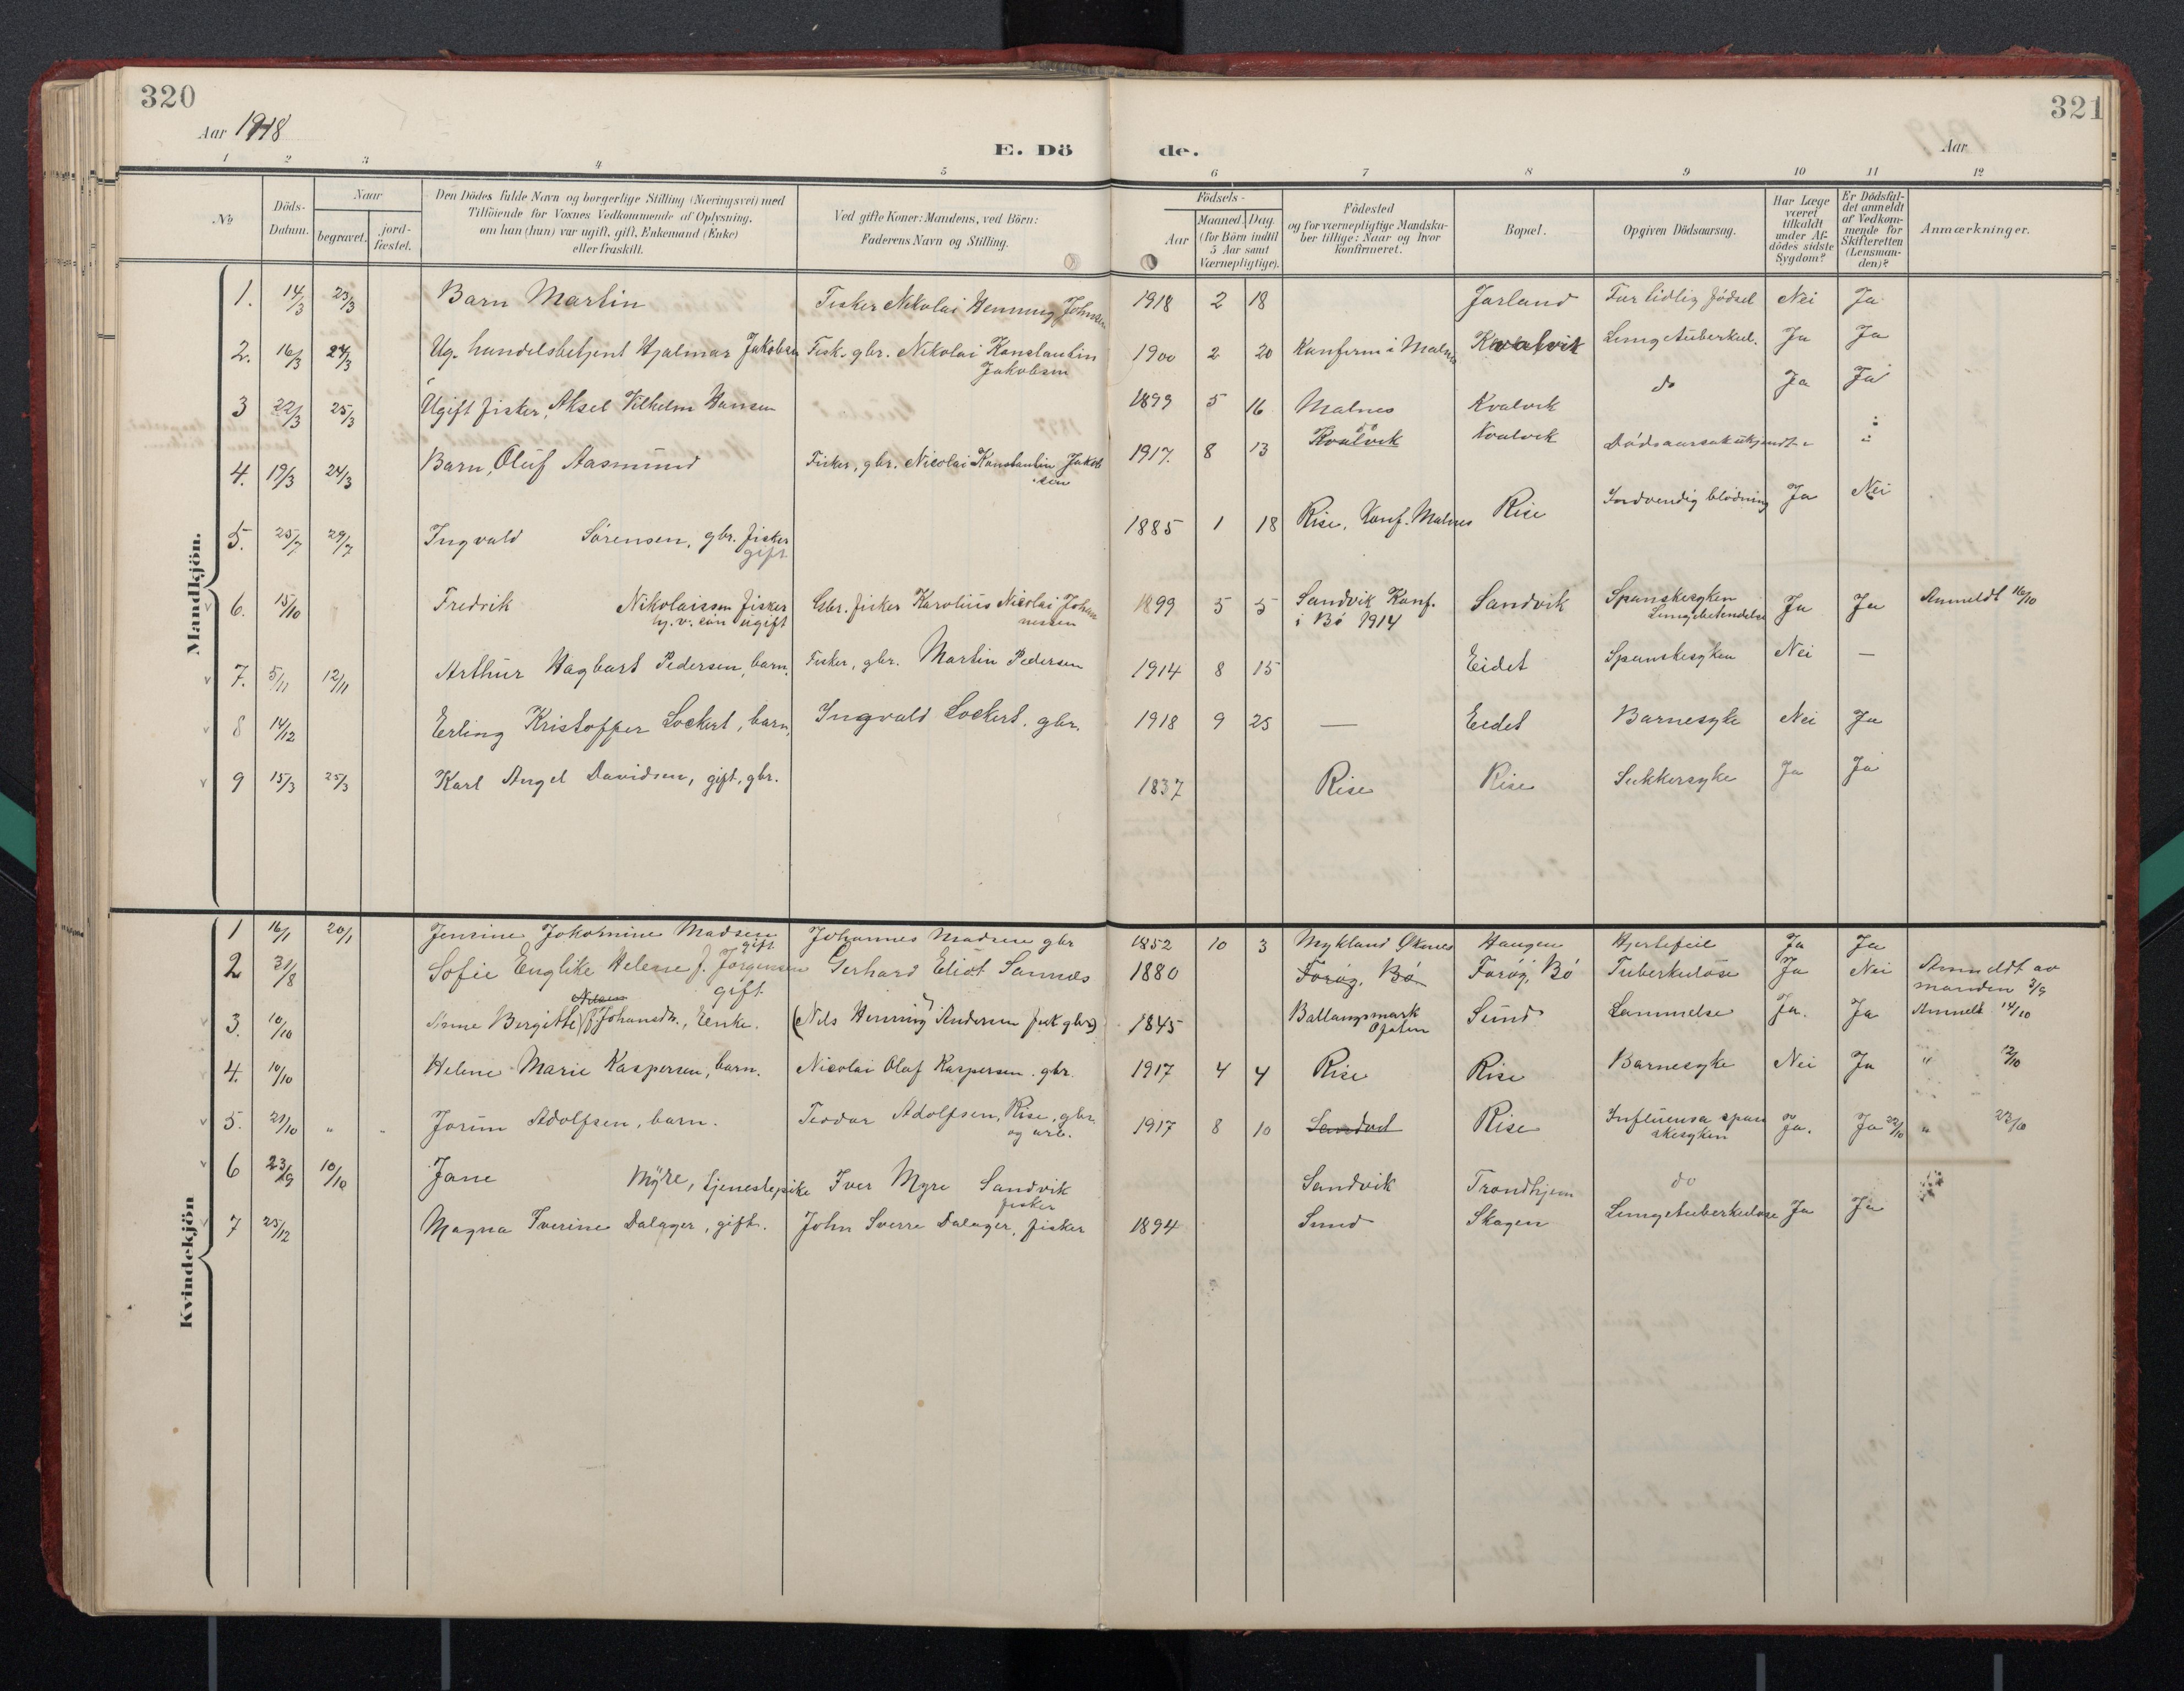 320
321
Aar 1918
Aar
E. Dö
de.
1 2 3 4 5 6 7 8 9 10 11 12
No
Döds-Datum.
Naar
begravet.
jord-fæstet.
Den Dödes fulde Navn og borgerlige Stilling (Næringsvei) med
Tilföiende for Voxnes Vedkommende af Oplysning,
om han (hun) var ugift, gift, Enkemand (Enke)
eller fraskilt.
Ved gifte Koner: Mandens, ved Börn:
Faderens Navn og Stilling.
Födsels-
Aar
Maaned. Dag.
(for Börn indtil
5 Aar samt
Værnepligtige).
Födested
og for værnepligtige Mandska-
ber tillige: Naar og hvor
konfirmeret.
Bopæl.
Opgiven Dödsaarsag.
Har Læge
været
tilkaldt
under Af-
dödes sidste
Sygdom?
Er Dödsfal-
det anmeldt
af Vedkom-
mende for
Skifteretten
(Lensman-
den)?
Anmærkninger.
Mandkjön.
1. 14/3 23/3 Barn Martin Fisker Nikolai Henning Johnsen 1918 2 18 Jorland For tidlig födsel Nei Ja
2. 16/3 24/3 Ug. handelsbetjent Hjalmar Jakobsen Fisk. gbr. Nikolai Konstantin 1900 2 20 Konfirm i Malnes Kvalvik Lungetuberkul. Ja Ja
Jakobsen
3 22/3 25/3 Ugift fisker, Aksel Vilhelm Hansen 1899 5 16 Malnes Kvalvik do Ja Ja
4. 19/3 24/3 Barn, Oluf Aasmund Fisker, gbr. Nicolai Konstantin Jakob 1917. 8 13 do Kvalvik Kvalvik Dödsaarsak ukjendt
sen
5. 25/7 29/7 Ingvald Sörensen, gbr. fisker 1885 1 18 Rise, Konf. Malnes Rise Indvendig blödning Ja Nei
gift
6. 15/10 Fredrik Nikolaissen fisker Gbr. fisker Karolius Nicolai Johan 1899 5 5 Sandvik Konf. Sandvik Spanskesyken Ja Ja Anmeldt 16/10
hj. v. sön ugift nessen i Bö 1914 Lungebetendelse
7. 5/11 12/11 Arthur Hagbart Pedersen, barn. Fisker, gbr. Martin Pedersen 1914 8 15 Eidet Spanskesyken Nei —
8 14/12 Erling Kristoffer Lockert, barn, Ingvald Lockert. gbr. 1918 9 25 — Eidet Barnesyke Nei Ja
9 15/3 25/3 Karl Angel Davidsen, gift, gbr. 1837 Rise Rise Sukkersyke Ja Ja
Kvindekjön
1 16/1 20/1 Jensine Jokomine Madsen Johannes Madsen gbr 1852 10 3 Mykland Öksnes Haugen Hjertefeil Ja Ja
gift
2 31/8 Sofie Englike Helene J. Jörgensen Gerhard Eliot Sannes 1880 Foröy, Bö Foröy, Bö Tuberkulose Ja Nei Anmeldt av
gift manden 2/9
Nilsen
3. 10/10 Anne Bergitte f. Johansdtr., Enke. (Nils Henning Andersen fisk gbr) 1845 Ballangsmark Sund Lammelse Ja. Ja Anmeldt 14/10
Ofoten
4. 10/10 Helene Marie Kaspersen, barn. Nicolai Olaf Kaspersen. gbr. 1917 4 4 Rise Rise Barnesyke Nei Ja " 12/10
5. 21/10 " " Jorun Adolfsen, barn. Teodor Adolfsen, Rise, gbr. 1917 8 10 Rise Influensa span Ja. Ja 22/10 " 23/10
og arb. skesyken
6 23/9 10/10 Jane Myre, tjenestepike Iver Myre Sandvik Sandvik Trondhjem do
fisker
7 25/12 Magna Iverine Dalager, gift. John Sverre Dalager, fisker 1894 Sund Skagen Lungetuberkulose Ja Ja